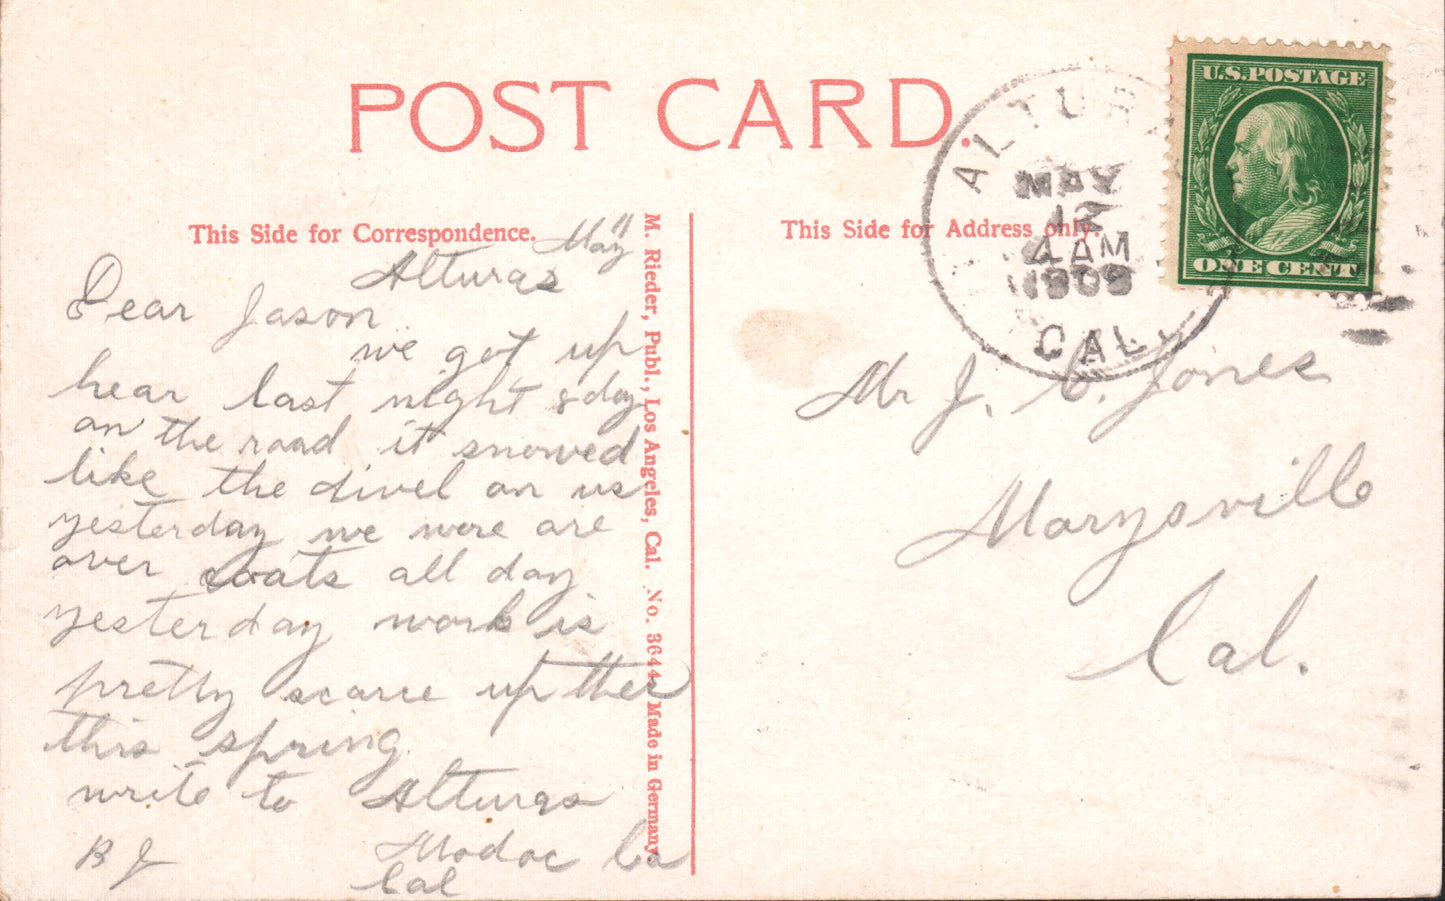 POST CARD.
This Side for Correspondence.
This Side for Address only.
M. Rieder, Publ., Los Angeles, Cal. No. 3644 Made in Germany.
U.S. POSTAGE
ONE CENT
ALTUR
MAY
12
4 AM
1909
CAL.
May 11
Alturas
Dear Jason
we got up
hear last night & day
on the road it snowed
like the divel on us
yesterday we wore are
over coats all day
yesterday work is
pretty scarce up ther
this spring
write to Alturas
Modoc Co
Cal
B J
Mr J. C. Jones
Marysville
Cal.